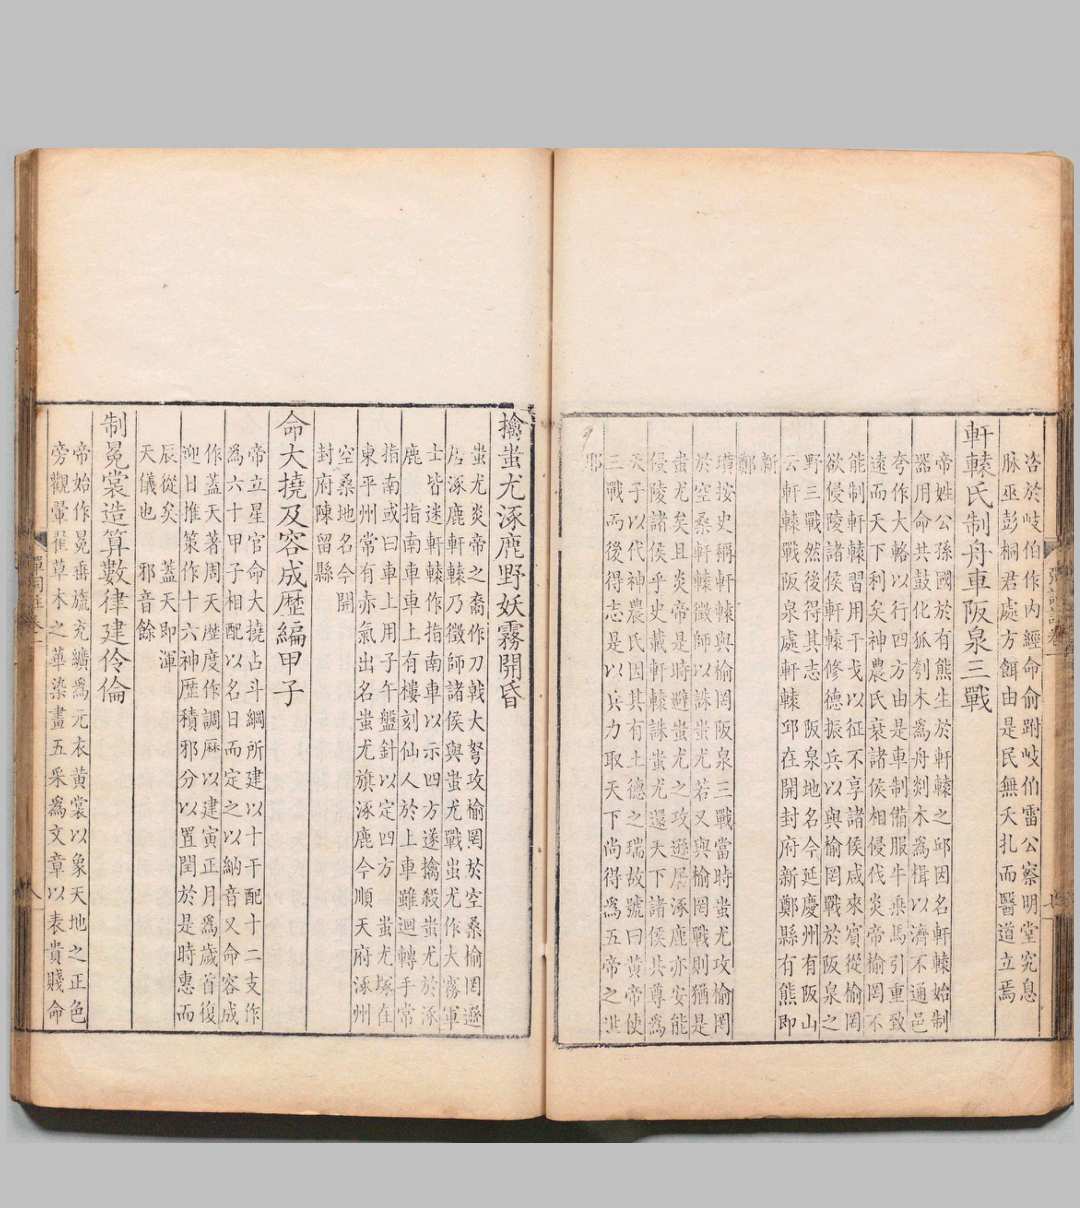 咨於岐伯作內經命俞跗岐伯雷公察明堂究息
脉巫彭桐君處方餌由是民無夭扎而醫道立焉
軒轅氏制舟車阪泉三戰
帝姓公孫國於有熊生於軒轅之邱因名軒轅始制
器用命共鼓化狐刳木為舟剡木為楫以濟不通邑
夸作大輅以行四方由是車制備服牛乘馬引重致
遠而天下利矣神農氏衰諸侯相侵伐炎帝榆罔不
能制軒轅習用干戈以征不享諸侯咸來賓從榆罔
欲侵陵諸侯軒轅修德振兵以與榆罔戰於阪泉之
野三戰然後得其志 阪泉地名今延慶州有阪山
云軒轅戰阪泉處軒轅邱在開封府新鄭縣有熊即
新
鄭
按史稱軒轅與榆罔阪泉三戰當時蚩尤攻榆罔
於空桑軒轅徵師以誅蚩尤若又與榆罔戰則猶是
蚩尤矣且炎帝是時避蚩尤之攻遜居涿鹿亦安能
侵陵諸侯乎史載軒轅誅蚩尤還天下諸侯共尊為
天子以代神農氏因其有土德之瑞故號曰黃帝使
三戰而後得志是以兵力取天下尚得為五帝之
耶
擒蚩尤涿鹿野妖霧開昏
蚩尤炎帝之裔作刀戟大弩攻榆罔於空桑榆罔遜
居涿鹿軒轅乃徵師諸侯與蚩尤戰蚩尤作大霧軍
士皆迷軒轅作指南車以示四方遂擒殺蚩尤於涿
鹿 指南車車上有樓刻仙人於上車雖迴轉手常
指南或曰車上用子午盤針以定四方 蚩尤塚在
東平州常有赤氣出名蚩尤旗涿鹿今順天府涿州
空桑地名今開
封府陳留縣
命大撓及容成歷編甲子
帝立星官命大撓占斗綱所建以十干配十二支作
為六十甲子相配以名日而定之以納音又命容成
作蓋天著周天歷度作調厤以建寅正月為歲首後
迎日推策作十六神歷積邪分以置閏於是時惠而
辰從矣 蓋天即渾
天儀也 邪音餘
制冕裳造算數律建伶倫
帝始作冕垂旒充纊為元衣黃裳以象天地之正色
旁觀翬翟草木之華染畫五采為文章以表貴賤命